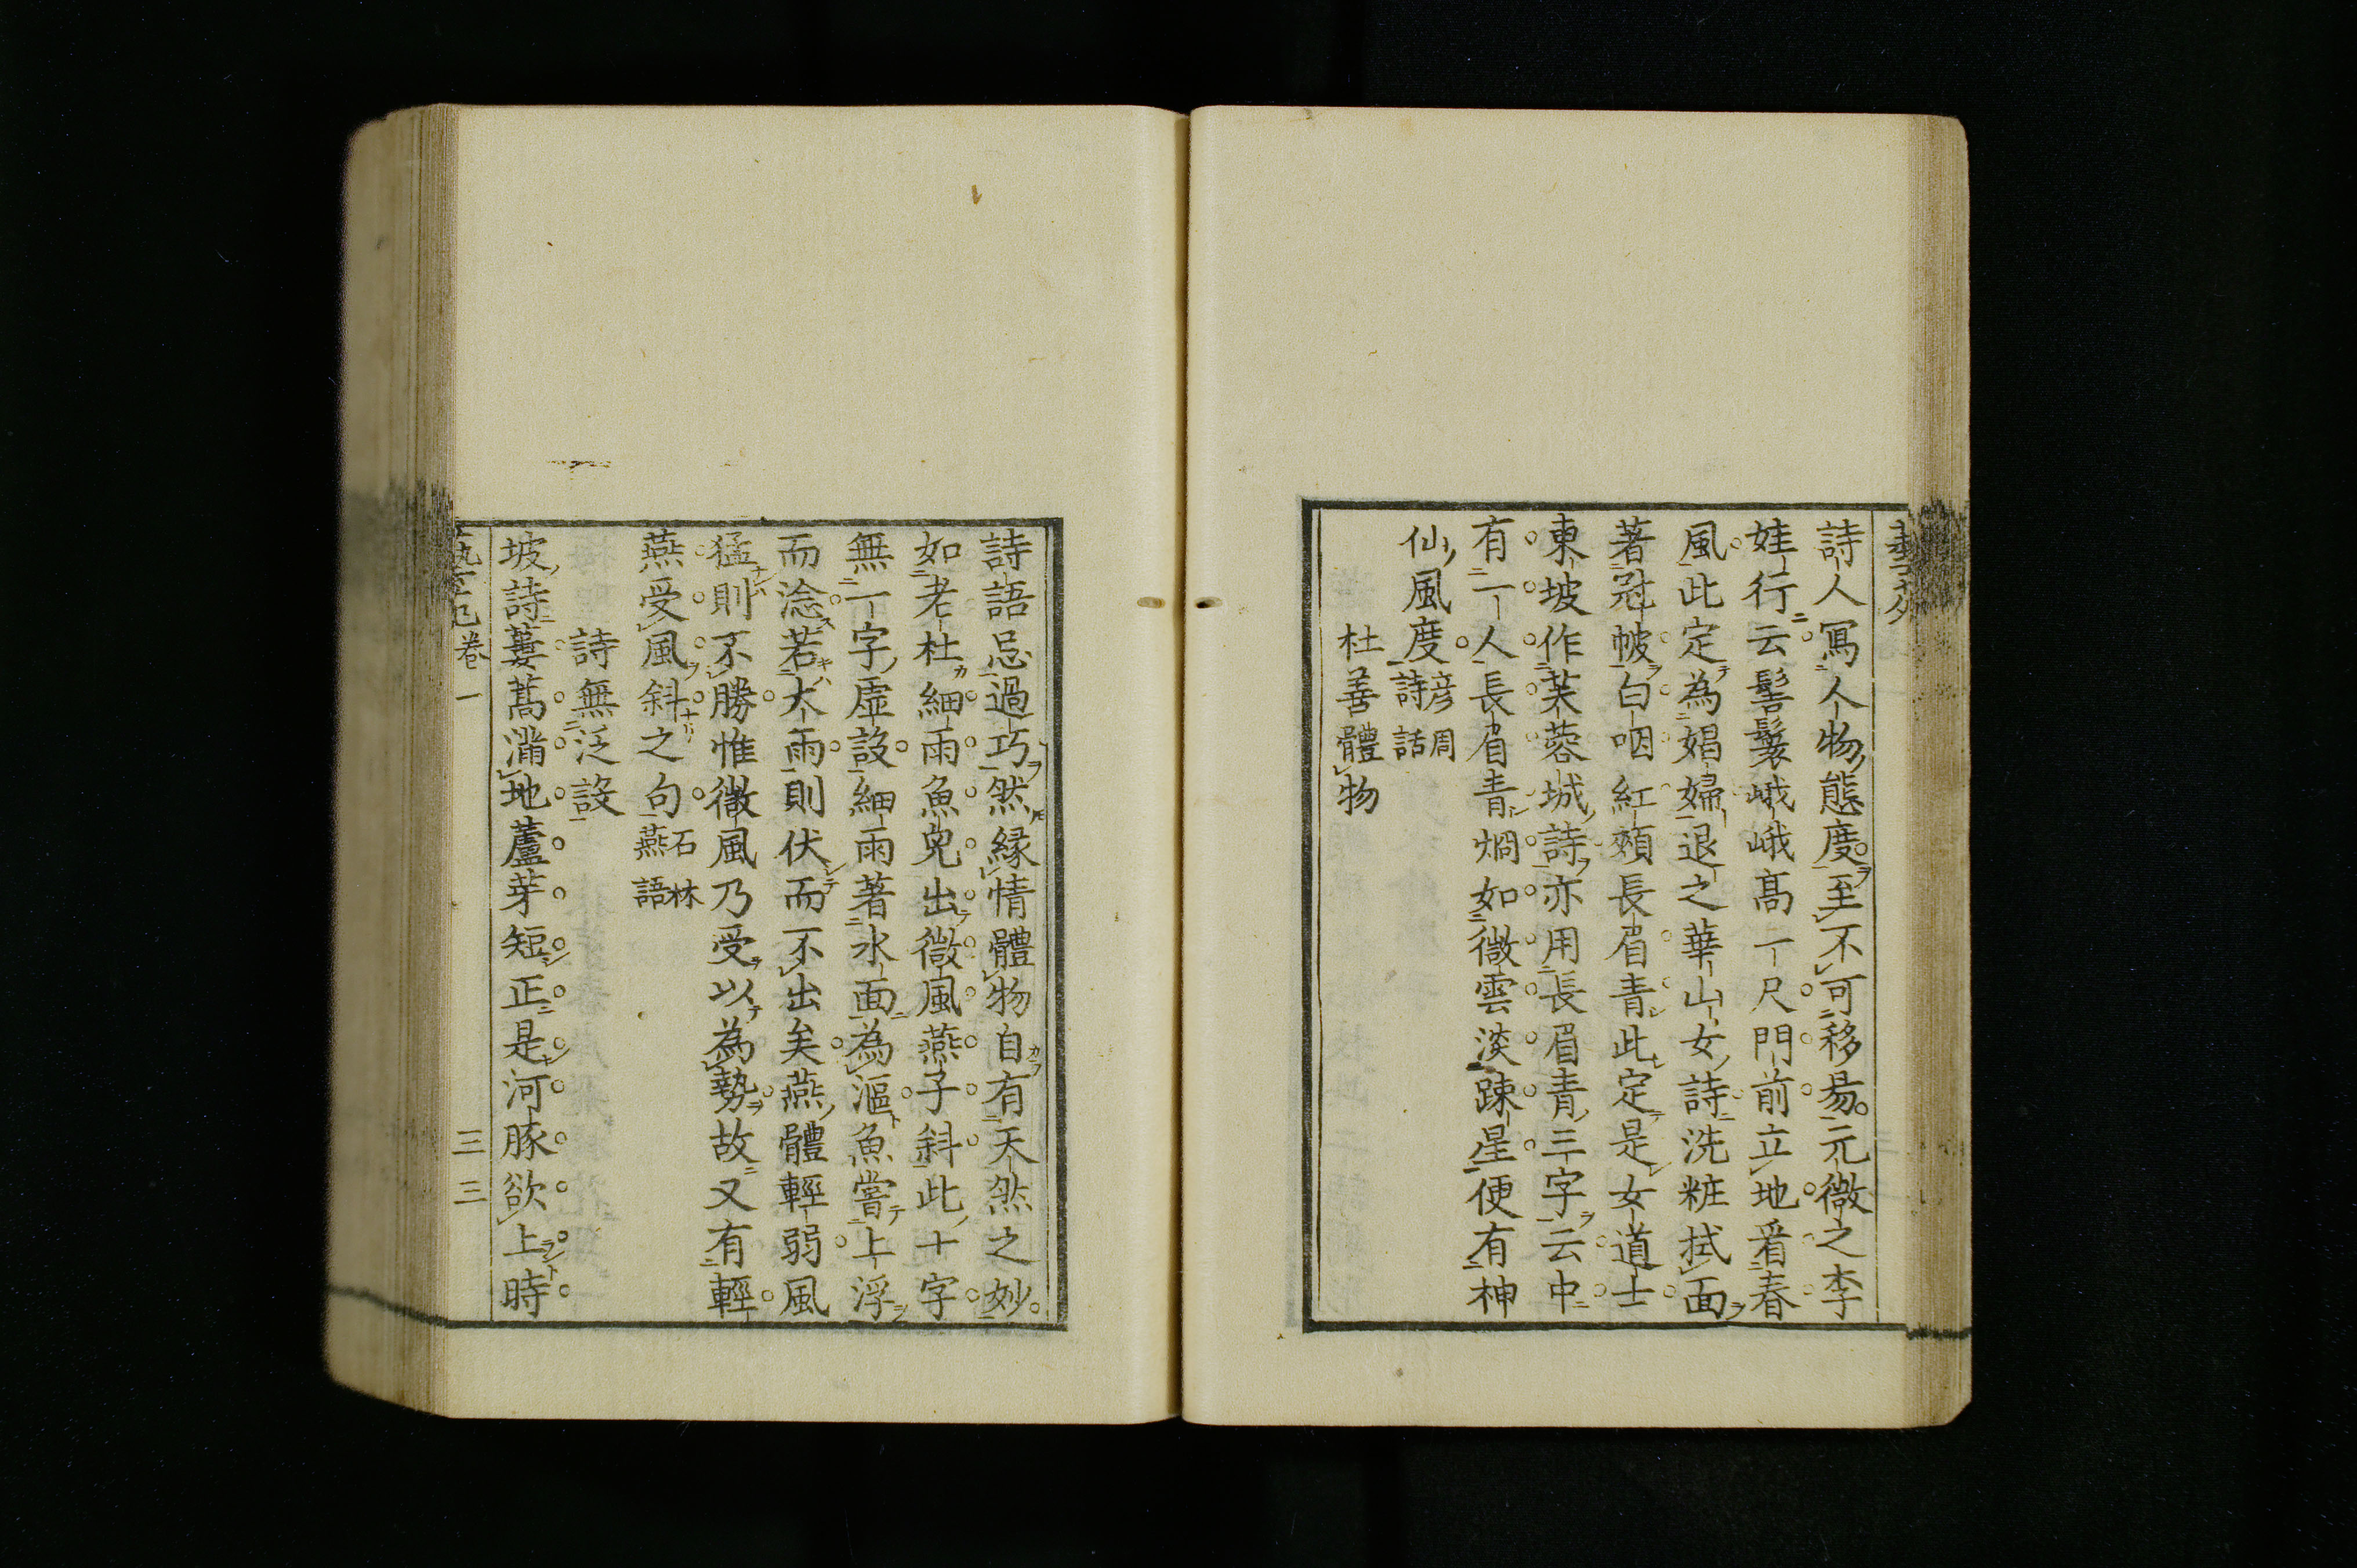 詩人冩人物態度至不可移易元微之李
娃行云髻鬟峨峨髙一尺門前立地㸔春
風此定為娼婦退之華山女詩洗粧拭面
著冠帔白咽紅頰長眉青此定是女道士
東坡作芙蓉城詩亦用長眉青三字云中
有一人長眉青烱如微雲淡踈星便有神
仙風度彦周詩話
杜善體物
詩語忌過巧然縁情體物自有天然之妙
如老杜細雨魚兒出微風燕子斜此十字
無一字虛設細雨著水面為漚魚嘗上浮
而淰若大雨則伏而不出矣燕體輕弱風
猛則不勝惟微風乃受以為勢故又有輕
燕受風斜之句石林燕語
詩無泛設
坡詩蔞蒿滿地蘆芽短正是河豚欲上時
卷一 三三